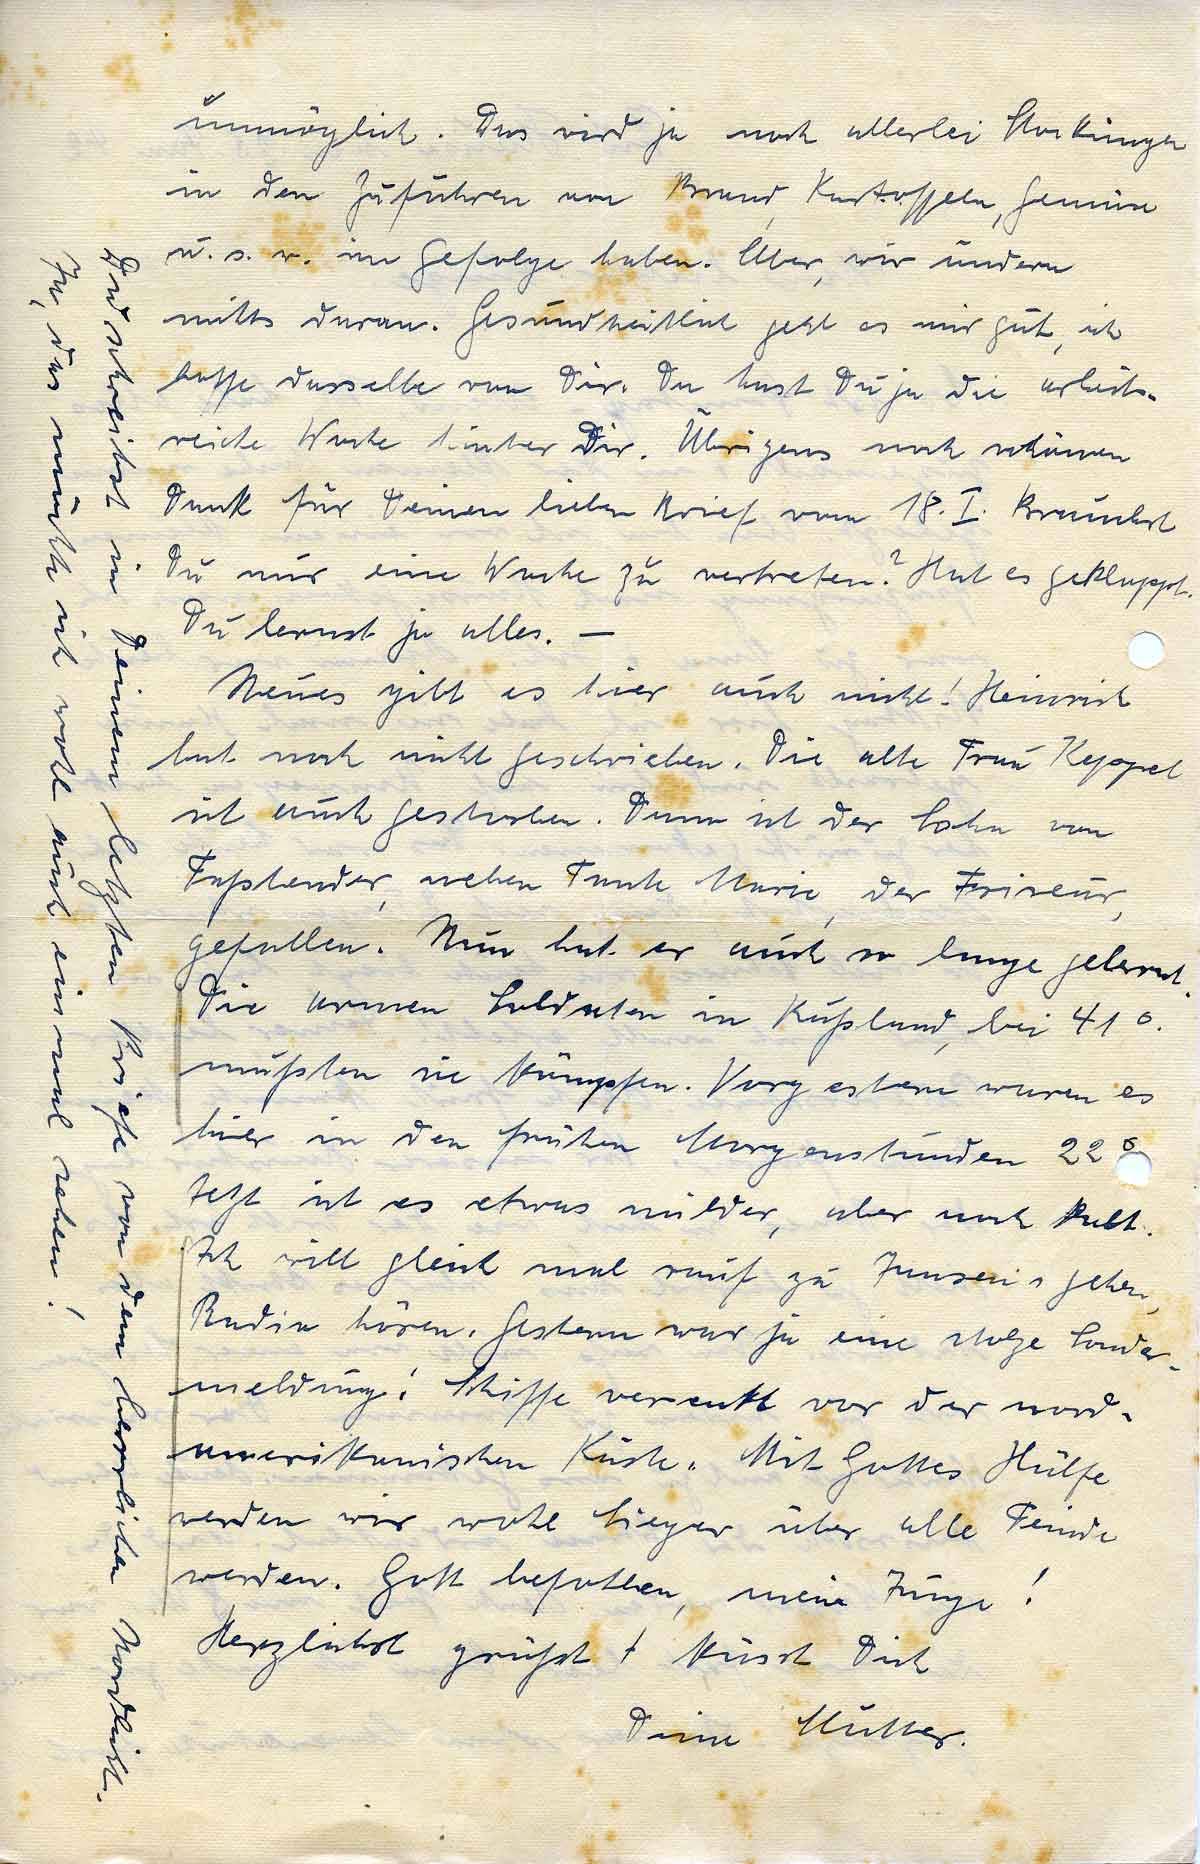 unmöglich. Das wird ja noch allerlei Stockungen
in den Zufuhren von Brand, Kartoffeln, Gemüse
u. s. w. im Gefolge haben. Aber, wir ändern
nichts daran. Gesundheitlich geht es mir gut, ich
hoffe dasselbe von Dir. Du hast Du ja die arbeits-
reiche Woche hinter Dir. Übrigens noch schönen
Dank für Deinen lieben Brief vom 18. I. Brauchst
Du nur eine Woche zu vertreten? Hat es geklappt.
Du lernst ja alles. —
Neues gibt es hier auch nicht! Heinrich
hat noch nicht geschrieben. Die alte Frau Keppel
ist auch gestorben. Dann ist der Sohn von
Faßlender, neben Tante Marie, der Friseur,
gefallen. Nun hat er auch so lange gelernt.
Die armen Soldaten in Rußland, bei 41 °.
mußten sie kämpfen. Vorgestern waren es
hier in den frühen Morgenstunden 22 °
Jetzt ist es etwas milder, aber noch kalt.
Ich will gleich mal rauf zu Jansen's gehen,
Radio hören. Gestern war ja eine stolze Sonder-
meldung! Schiffe versenkt vor der nord-
amerikanischen Küste. Mit Gottes Hülfe
werden wir wohl Sieger über alle Feinde
werden. Gott befohlen, mein Junge!
Herzlichst grüßt & küsst Dich
Deine Mutter.
Du schreibst in Deinem letzten Briefe von dem herrlichen Nordlicht.
Ja, das möchte ich wohl auch einmal sehen!